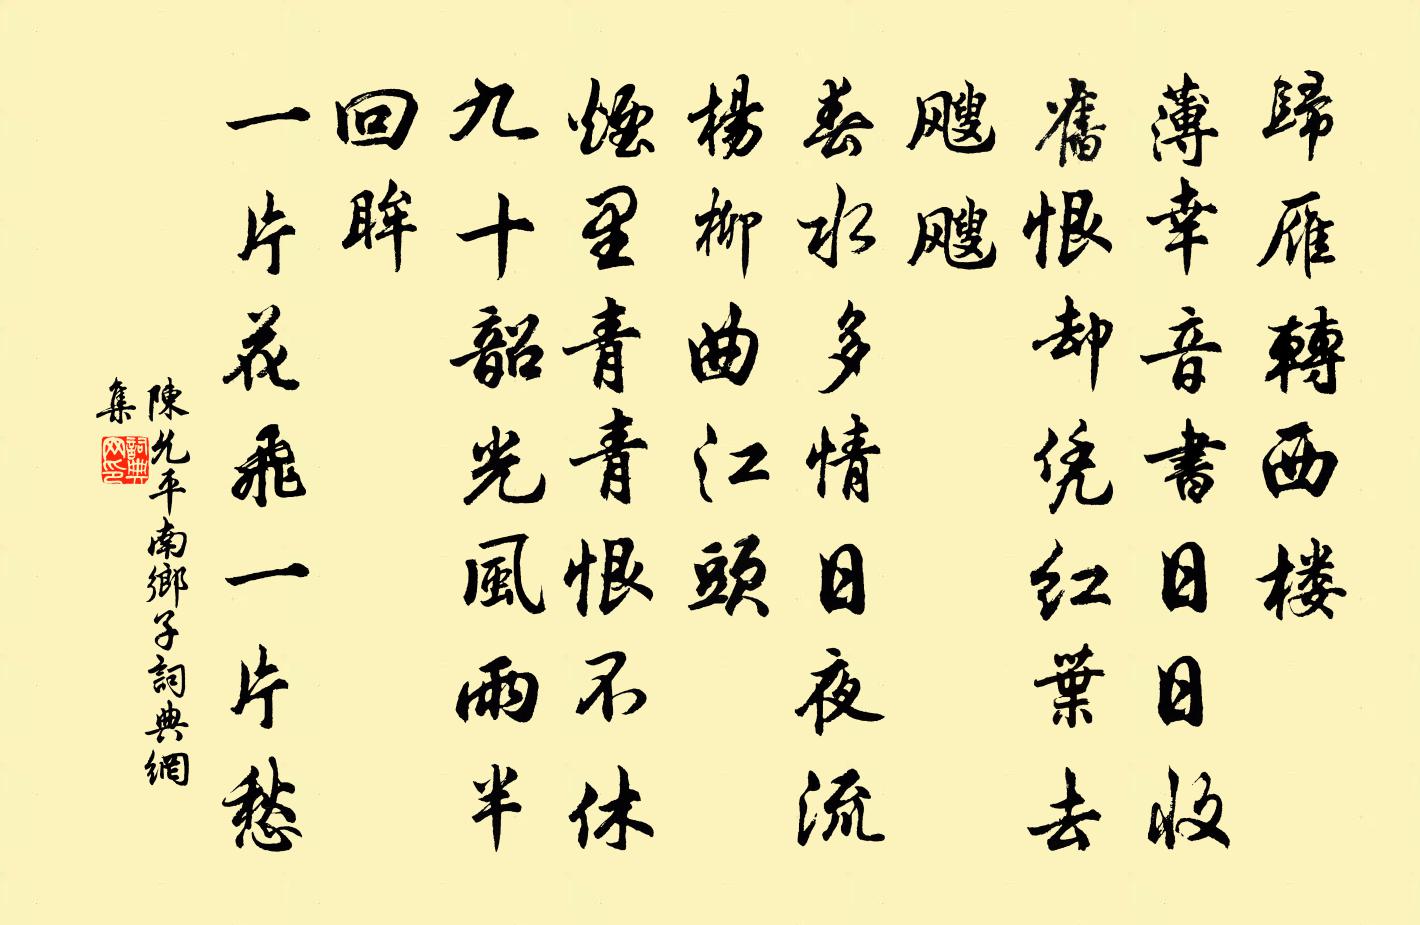 歸雁轉西楼
薄幸音書日日收
舊恨却凭红葉去
飕飕
春水多情日夜流
楊柳曲江頭
煙里青青恨不休
九十韶光風雨半
回眸
一片花飛一片愁
陳允平南鄉子詞典網
集
詞典
网印